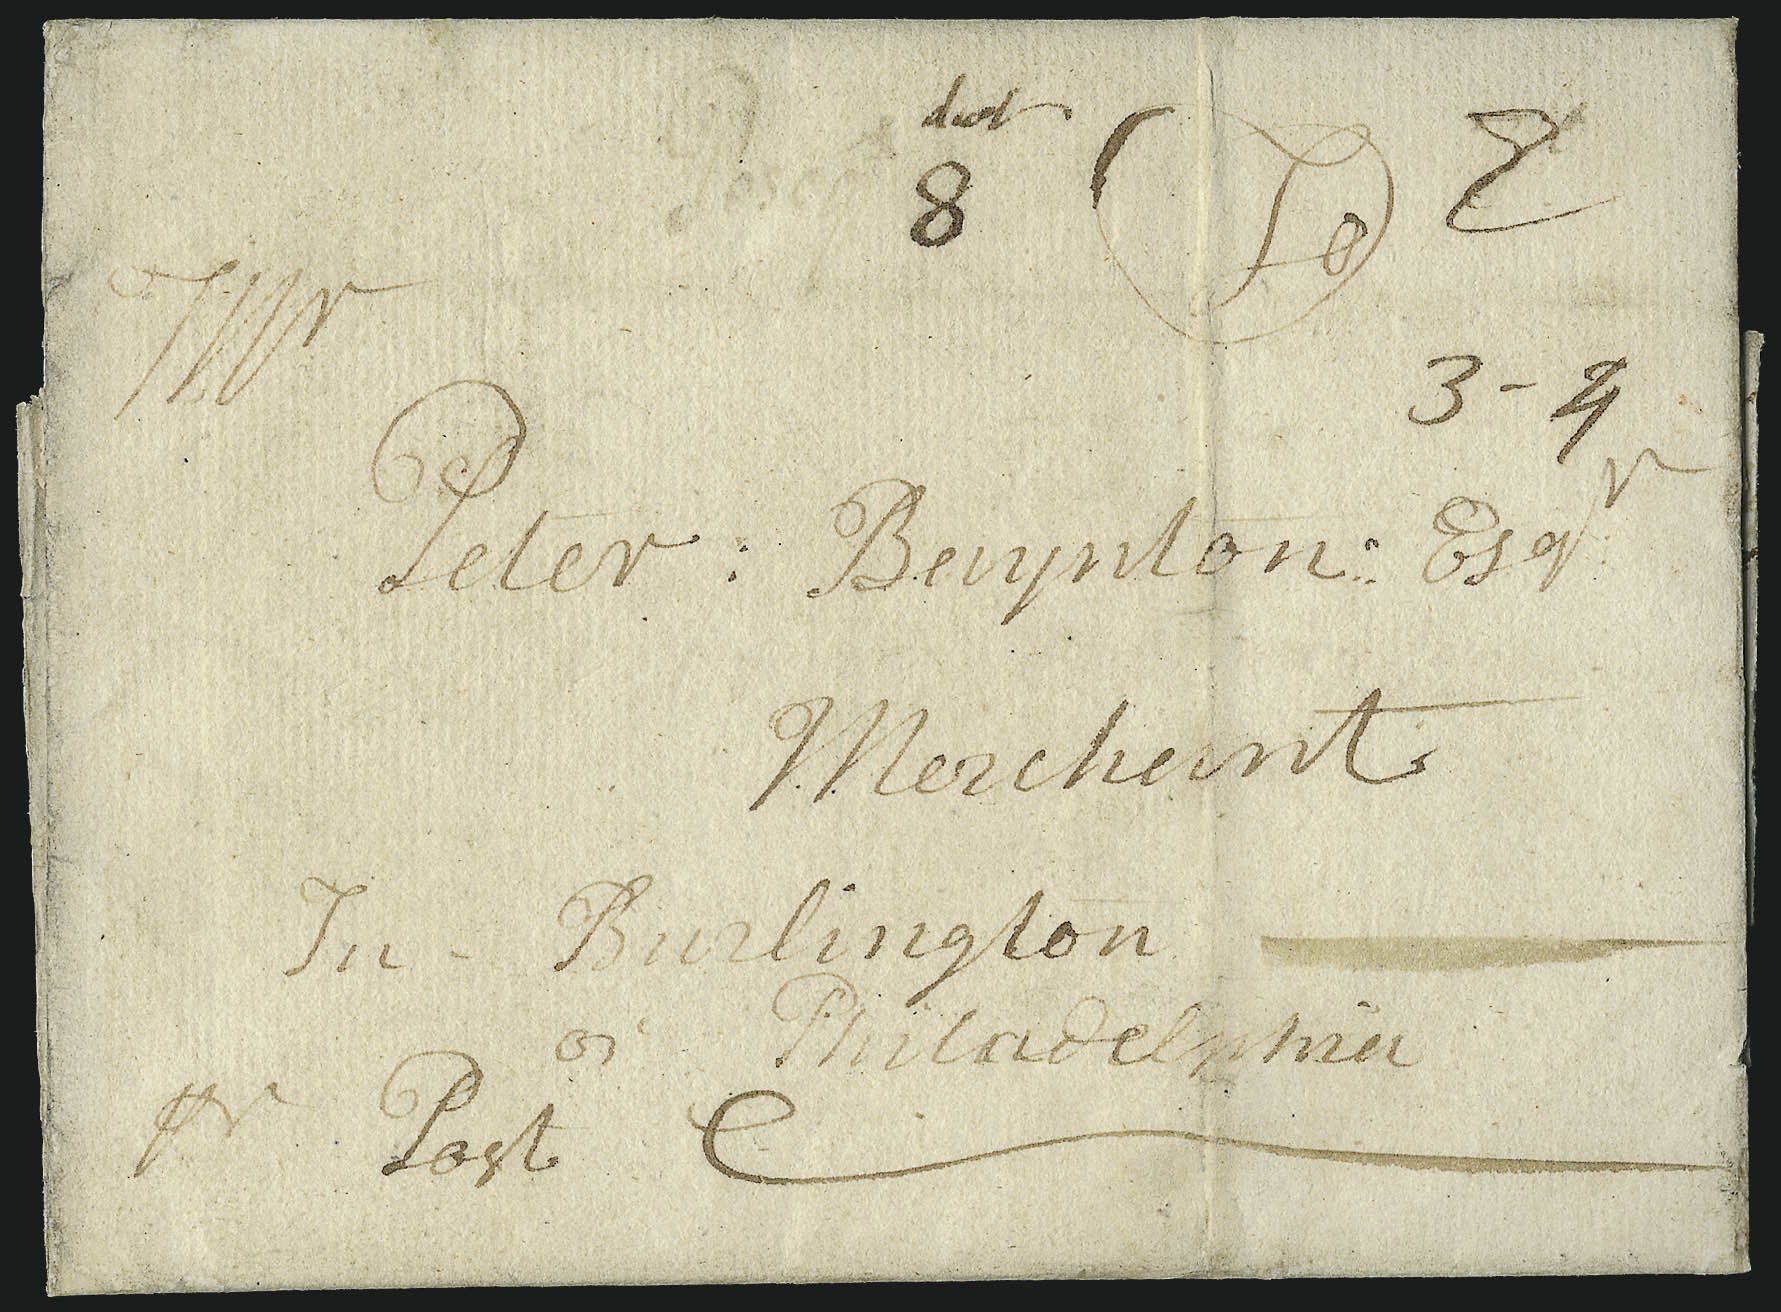 dwt
8
3 - 4
Mr
Peter : Baynton : Esqr
Merchant
In - Burlington
or Philadelphia
pr Post